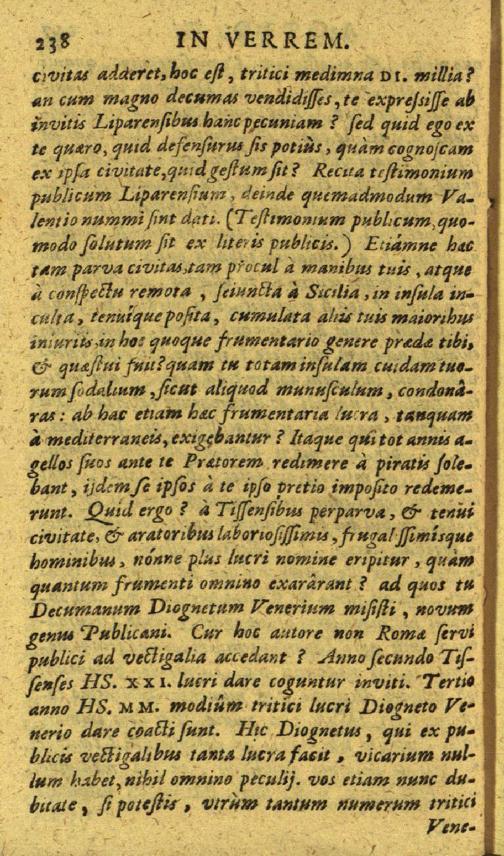 238 IN VERREM.
civitas adderet, hoc est, tritici medimna DI. millia?
an cum magno decumas vendidisses, te expressisse ab
invitis Liparensibus hanc pecuniam? sed quid ego ex
te quæro, quid defensurus sis potiùs, quàm cognoscam
ex ipsa civitate, quid gestum sit? Recita testimonium
publicum Liparensium, deinde quemadmodum Va-
lentio nummi sint dati. (Testimonium publicum, quo-
modo solutum sit ex literis publicis.) Etiámne hac
tam parva civitas, tam procul à manibus tuis, atque
à conspectu remota, seiuncta à Sicilia, in insula in-
culta, tenuíque posita, cumulata aliis tuis maioribus
iniuriis, in hoc quoque frumentario genere prædæ tibi,
& quæstui fuit? quam tu totam insulam cuidam tuo-
rum sodalium, sicut aliquod munusculum, condonâ-
ras: ab hac etiam hæc frumentaria lucra, tanquam
à mediterraneis, exigebantur? Itaque qui tot annis a-
gellos suos ante te Prætorem redimere à piratis sole-
bant, ijdem se ipsos à te ipso pretio imposito redeme-
runt. Quid ergo? à Tissensibus perparva, & tenui
civitate, & aratoribus laboriosissimis, frugalissimisque
hominibus, nónne plus lucri nomine eripitur, quàm
quantum frumenti omnino exarârant? ad quos tu
Decumanum Diognetum Venerium misisti, novum
genus Publicani. Cur hoc autore non Romæ servi
publici ad vectigalia accedant? Anno secundo Tis-
senses HS. XXI. lucri dare coguntur inviti. Tertio
anno HS. MM. modiûm tritici lucri Diogneto Ve-
nerio dare coacti sunt. Hic Diognetus, qui ex pu-
blicis vectigalibus tanta lucra facit, vicarium nul-
lum habet, nihil omnino peculij. vos etiam nunc du-
bitate, si potestis, vtrùm tantum numerum tritici
Vene-